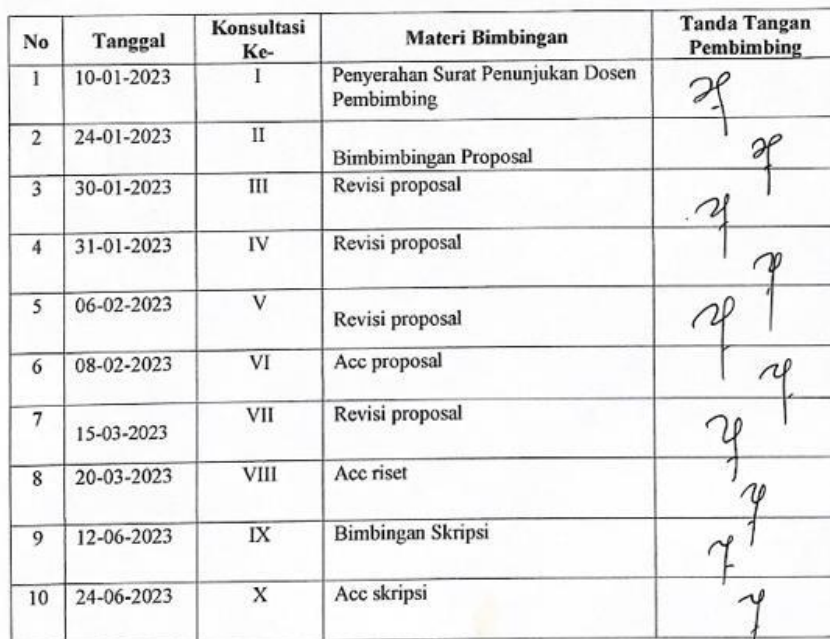 No Tanggal Konsultasi Ke- Materi Bimbingan Tanda Tangan Pembimbing
1 10-01-2023 I Penyerahan Surat Penunjukan Dosen
Pembimbing
2 24-01-2023 II Bimbimbingan Proposal
3 30-01-2023 III Revisi proposal
4 31-01-2023 IV Revisi proposal
5 06-02-2023 V Revisi proposal
6 08-02-2023 VI Acc proposal
7 15-03-2023 VII Revisi proposal
8 20-03-2023 VIII Acc riset
9 12-06-2023 IX Bimbingan Skripsi
10 24-06-2023 X Acc skripsi